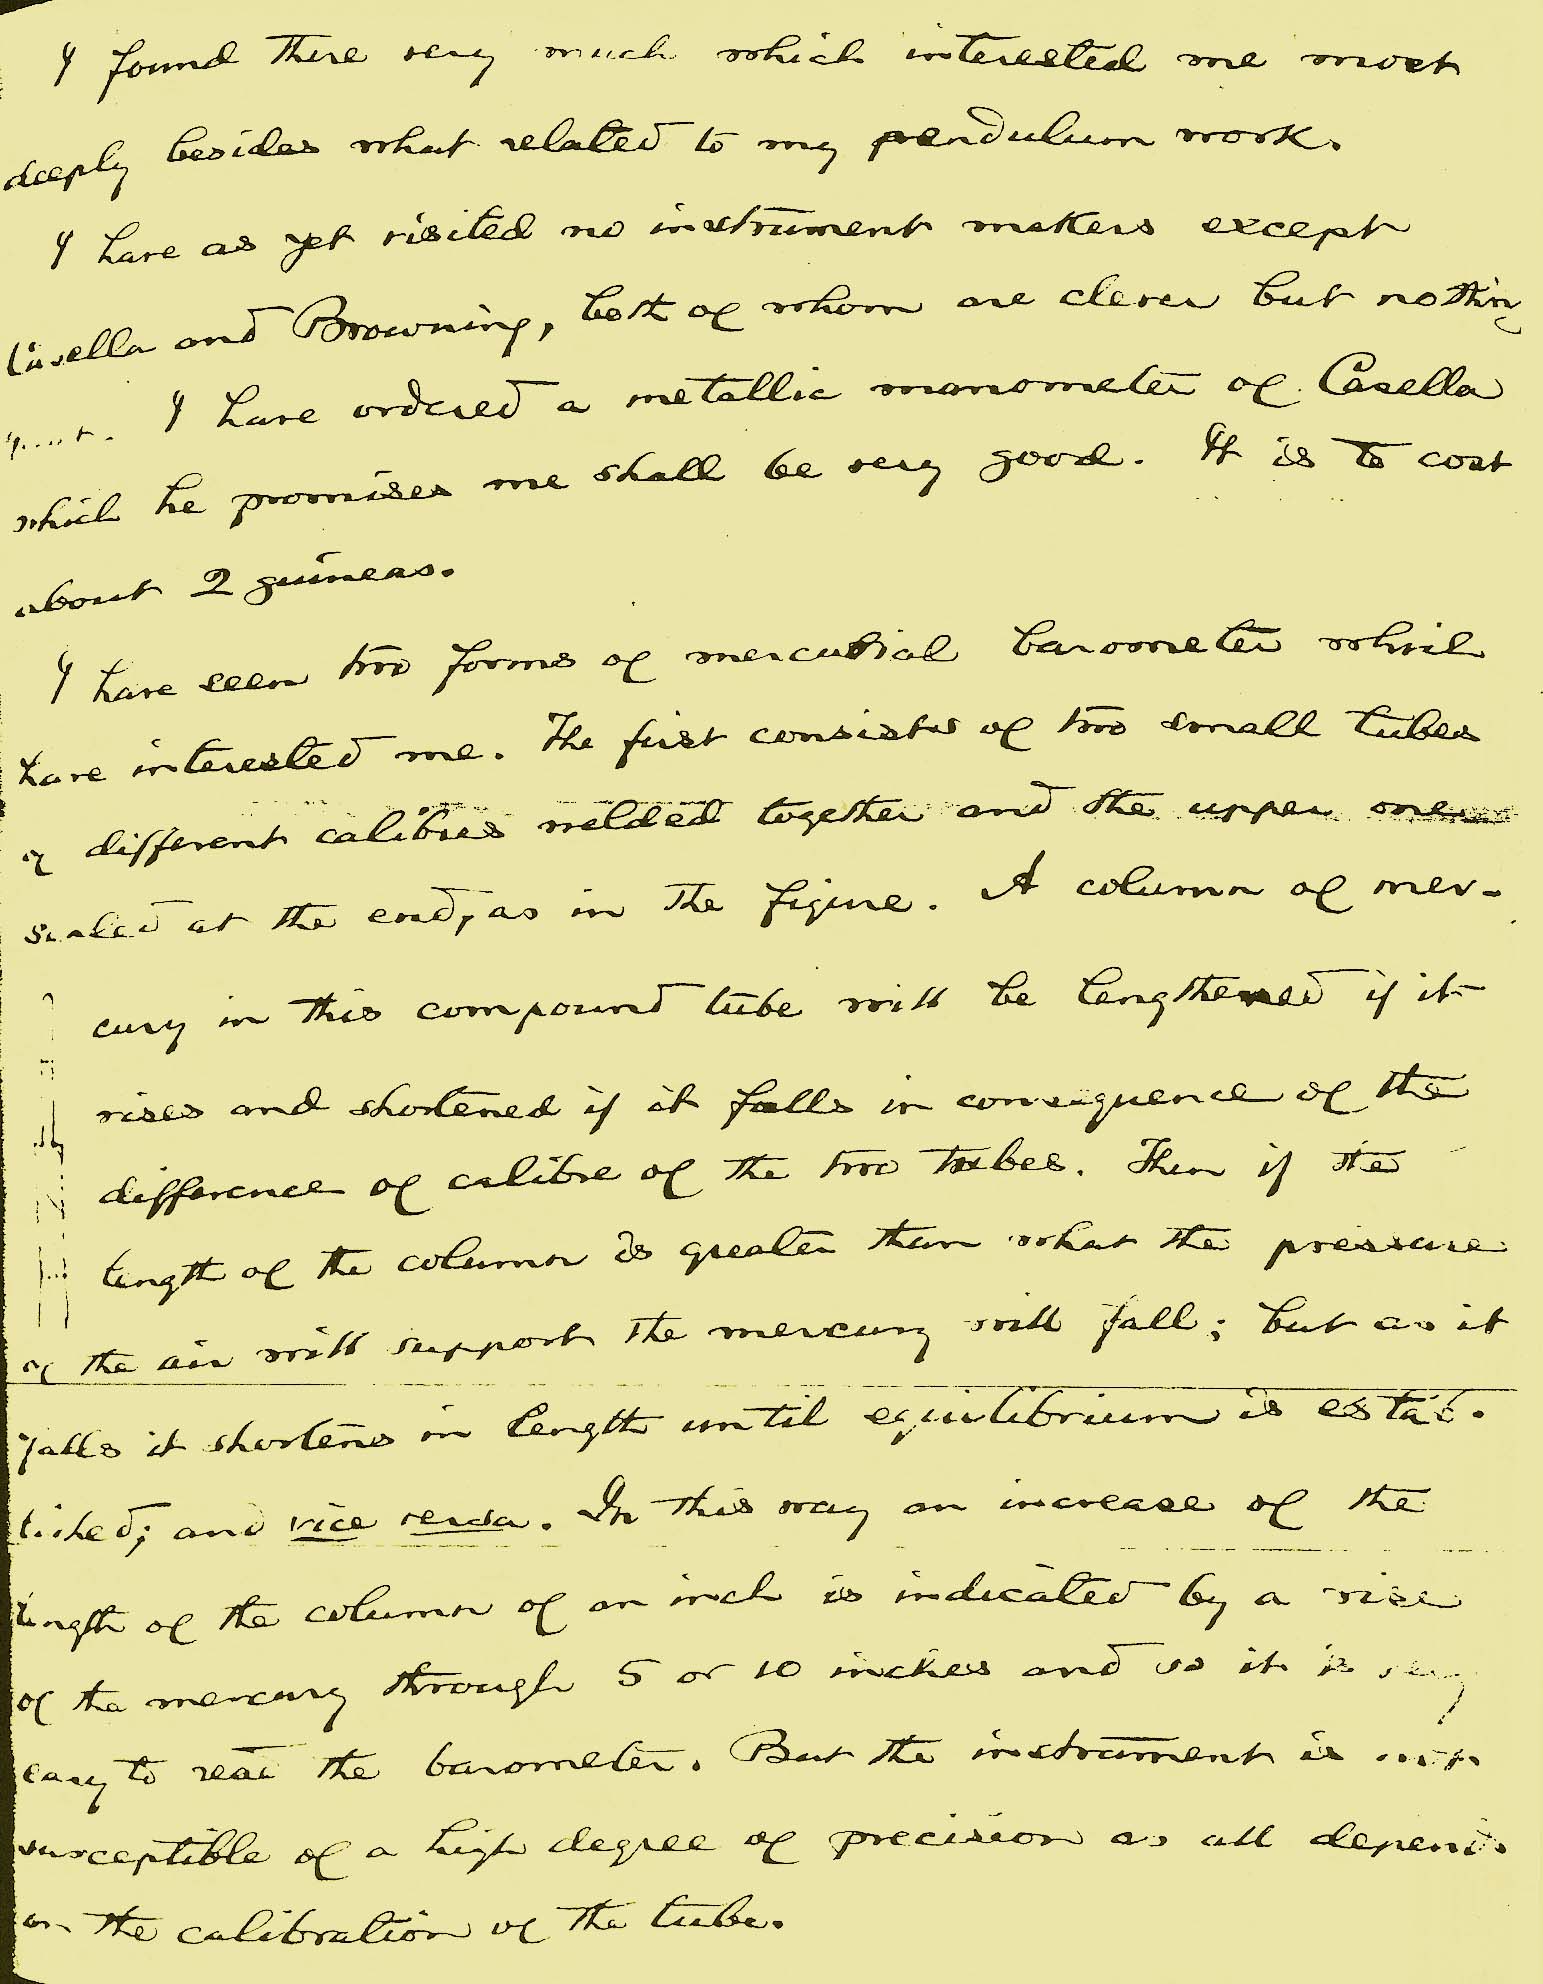 I found there very much which interested me most
deeply besides what related to my pendulum work.
I have as yet visited no instrument makers except
Casella and Browning, both of whom are clever but nothing
I have ordered a metallic manometer of Casella
which he promises me shall be very good. It is to cost
about 2 guineas.
I have seen two forms of mercurial barometer which
have interested me. The first consists of two small tubes
of different calibres welded together and the upper one
sealed at the end, as in the figure. A column of mer-
cury in this compound tube will be lengthened if it
rises and shortened if it falls in consequence of the
difference of calibre of the two tubes. Then if the
length of the column is greater than what the pressure
of the air will support the mercury will fall; but as it
falls it shortens in length until equilibrium is estab-
lished; and vice versa. In this way an increase of the
length of the column of an inch is indicated by a rise
of the mercury through 5 or 10 inches and so it is very
easy to read the barometer. But the instrument is not
susceptible of a high degree of precision as all depends
on the calibration of the tube.